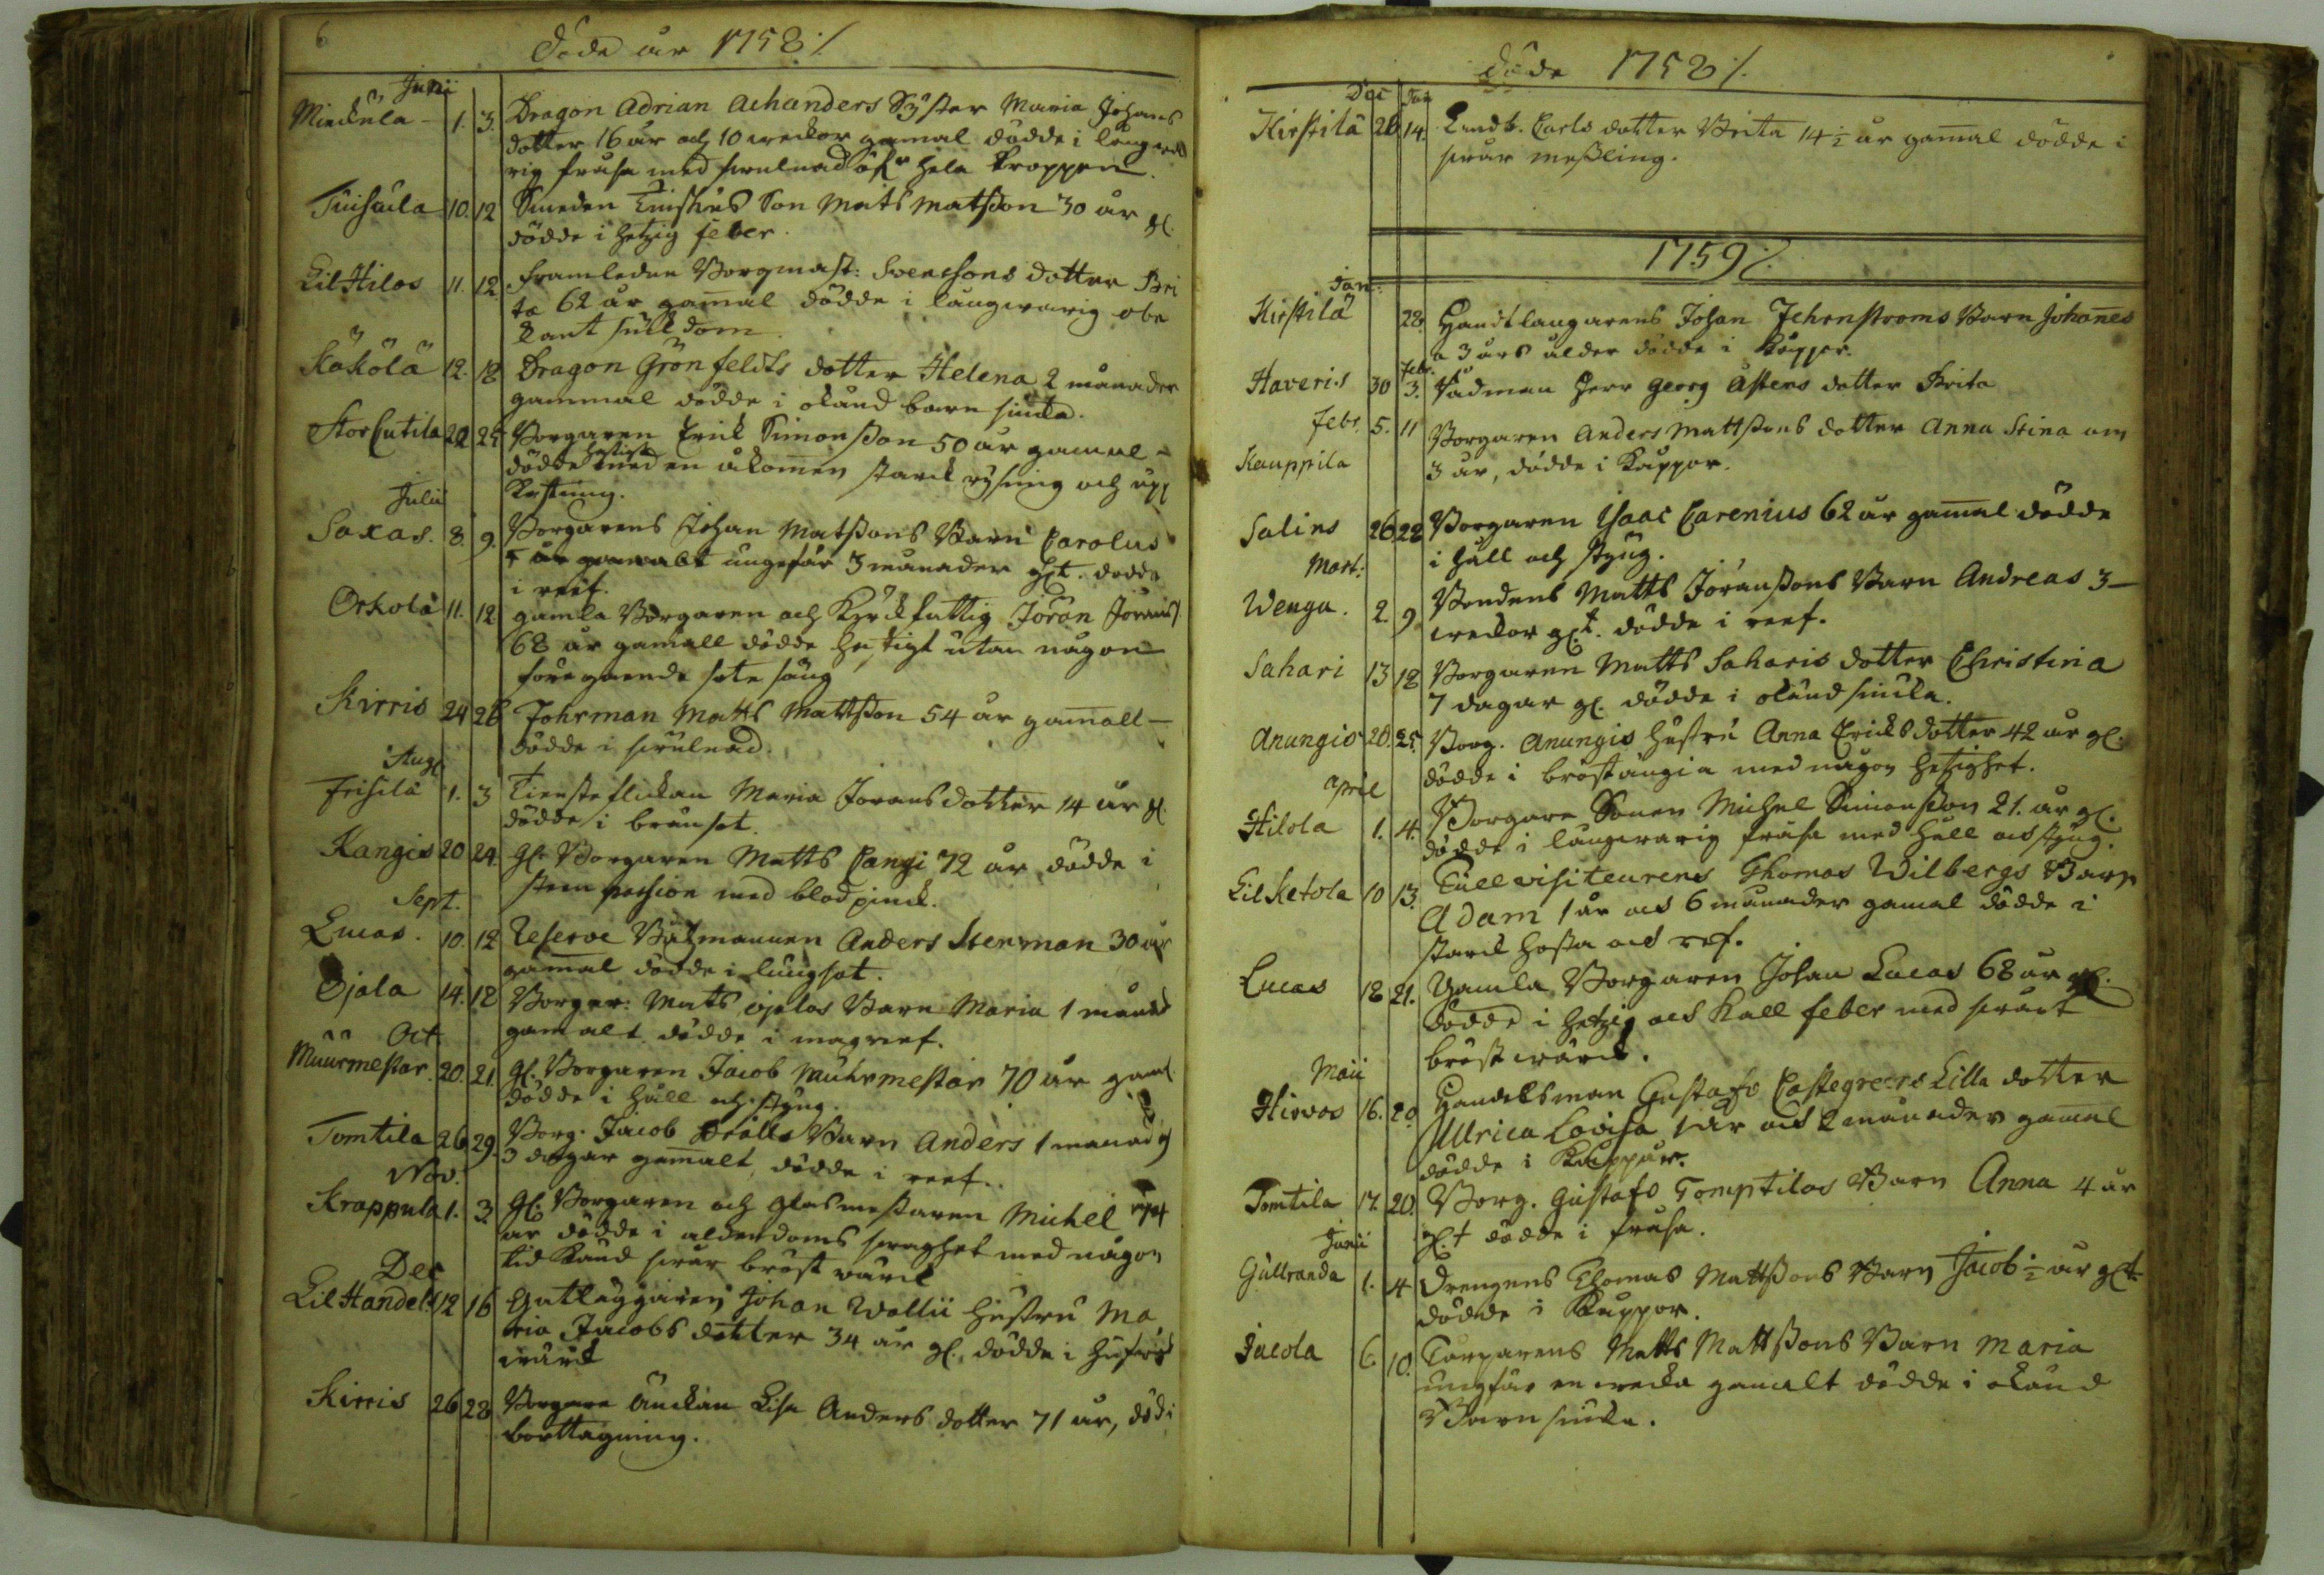 6
Döde åv 1758 ./.
Junii
Mieckula - 1. 3. Dragon Adrian Achanders Syster Maria Johans
dotter 16 år och 10 weckor gamal dödde i långwa
rig fråsa med swulnad öfr hela kroppen.
Tuisкula 10. 12 Smeden Tuiskus Son Mats Matsson 30 år gl.
dödde i hetzig feber.
Lil Hilos 11. 12 framledne Borgmäst: Svenssons dotter Bri
ta 62 år gamal dödde i långwarig obe
kant siukdom.
Käkölä 12. 18 Dragon Grönfeldts dotter Helena 2 månader
gammal dödde i okänd barn siuka.
Stor Eutila 22 25 Borgaren Erick Simonsson 50 år gamal -
dödde hastigt med en åkommen starck rysning och upp
kastning.
Julii
Saxas. 8. 9. Borgarens Johan Matssons Barn Carolus
ungefär 3 månader glt. dödde
i reef.
Orkola 11. 12 gamla Borgaren och Kyrckfattig Jöran Jörans/
68 år gamall dödde hastigt utan någon
föregående sote säng
Kirris 24 26 Fohrman Matts Mattsson 54 år gamall -
dödde i swulnad.
Aug.
Frisila 1. 3 Tiensteflickan Maria Joransdotter 14 år gl.
dödde i brånsot.
Kangis 20 24. gl. Borgaren Matts Cangi 72 år dödde i
steen passion med blodpinck.
Sept.
Lucas. 10. 12 Reserve Båtzmannen Anders Stenman 30 år
gamal dödde i lungsot.
Ojala 14. 18 Borgar: Mats ojalas Barn Maria 1 månad
gamalt dödde i magref.
Oct
Muurmestar. 20. 21. gl. Borgaren Jacob Muhrmestar 70 år gaml
dödde i håll och styng.
Tomtila 26 29. Borg. Jacob Brålls Barn Anders 1 månad och
3 dagar gamalt, dödde i reef.
Nov.
Krappula 1. 3. gl. Borgaren och glasmestaren Michel
år dödde i alderdoms swaghet med någon
tid känd swår bröst wärck
Dec
Lil Handels 12 16 Gatläggaren Johan Wallii hustru Ma
ria Jacobs dotter 34 år gl. dödde i hufwud
wärck
Kirris 26 28 Borgare Änckan Lisa Anders dotter 71 år, död i
borttagning.
Döde 1758 ./.
Dec Jan
Kirstilä 26 14. Landb. Carls dotter Brita 14 ½ år gamal dödde i
swår meßling.
1759 ./.
Jan.
Kirstilä 28. Handtlangarens Johan Fehrnstroms Barn Johanes
a 3 års ålder dödde i kåppor.
Febr.
Haveris 30 3. Rådman Herr Georg Åstens dotter Brita
Febr. 5. 11 Borgaren Anders Mattssons dotter Anna Stina om
Kauppila 3 år, dödde i Kåppor.
Salins 26. 28 Borgaren Isaac Carenius 62 år gamal dödde
i håll och styng.
Mart:
Wenga. 2. 9 Bondens Matts Joranssons Barn Andreas 3 -
weckor glt. dödde i reef.
Sahari 13 18 Borgaren Matts Saharis dotter Christina
7 dagar gl. dödde i okänd siuka.
Anungis 20. 25. Borg. Anungis hustru Anna Ericks dotter 42 år gl.
dödde i bröstängia med någon hetzighet.
April
Hilola 1. 4. Borgare Sonen Michel Simonsson 21. år gl.
dödde i långwarig fråsa med håll och styng.
Lil Ketola 10 13. Tullvisiteurens Thomas Wilbergs Barn
Adam 1 år och 6 månader gamal dödde i
starck hosta och ref.
Lucas 18 21. Gamla Borgaren Johan Lucas 68 år gl.
dödde i hetzig och kall feber med swårt
bröstwärck.
Maii
Hirvos 16. 20. Handelsman Gustafs Castegreens Lilla dotter
Ullrica Lovisa 1 år och 2 månader gamal
dödde i Kåppor.
Tomtila 17. 20. Borg. Gustafs Tomptilas Barn Anna 4 år
glt dödde i fråsa.
Junii
Gullranda 1. 4 Drengens Thomas Mattssons Barn Jacob ½ år glt.
dödde i Kåppor.
Jacola 6. 10. Torparens Matts Mattssons Barn Maria
ungfär en wecka gamalt dödde i okänd
Barn siuka.